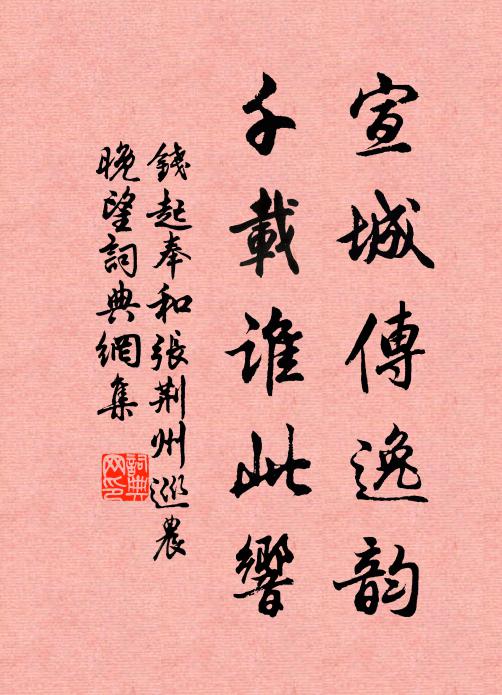 宣城傳逸韵
千載誰此響
錢起奉和張荆州巡農
晚望詞典網集
詞典
网印